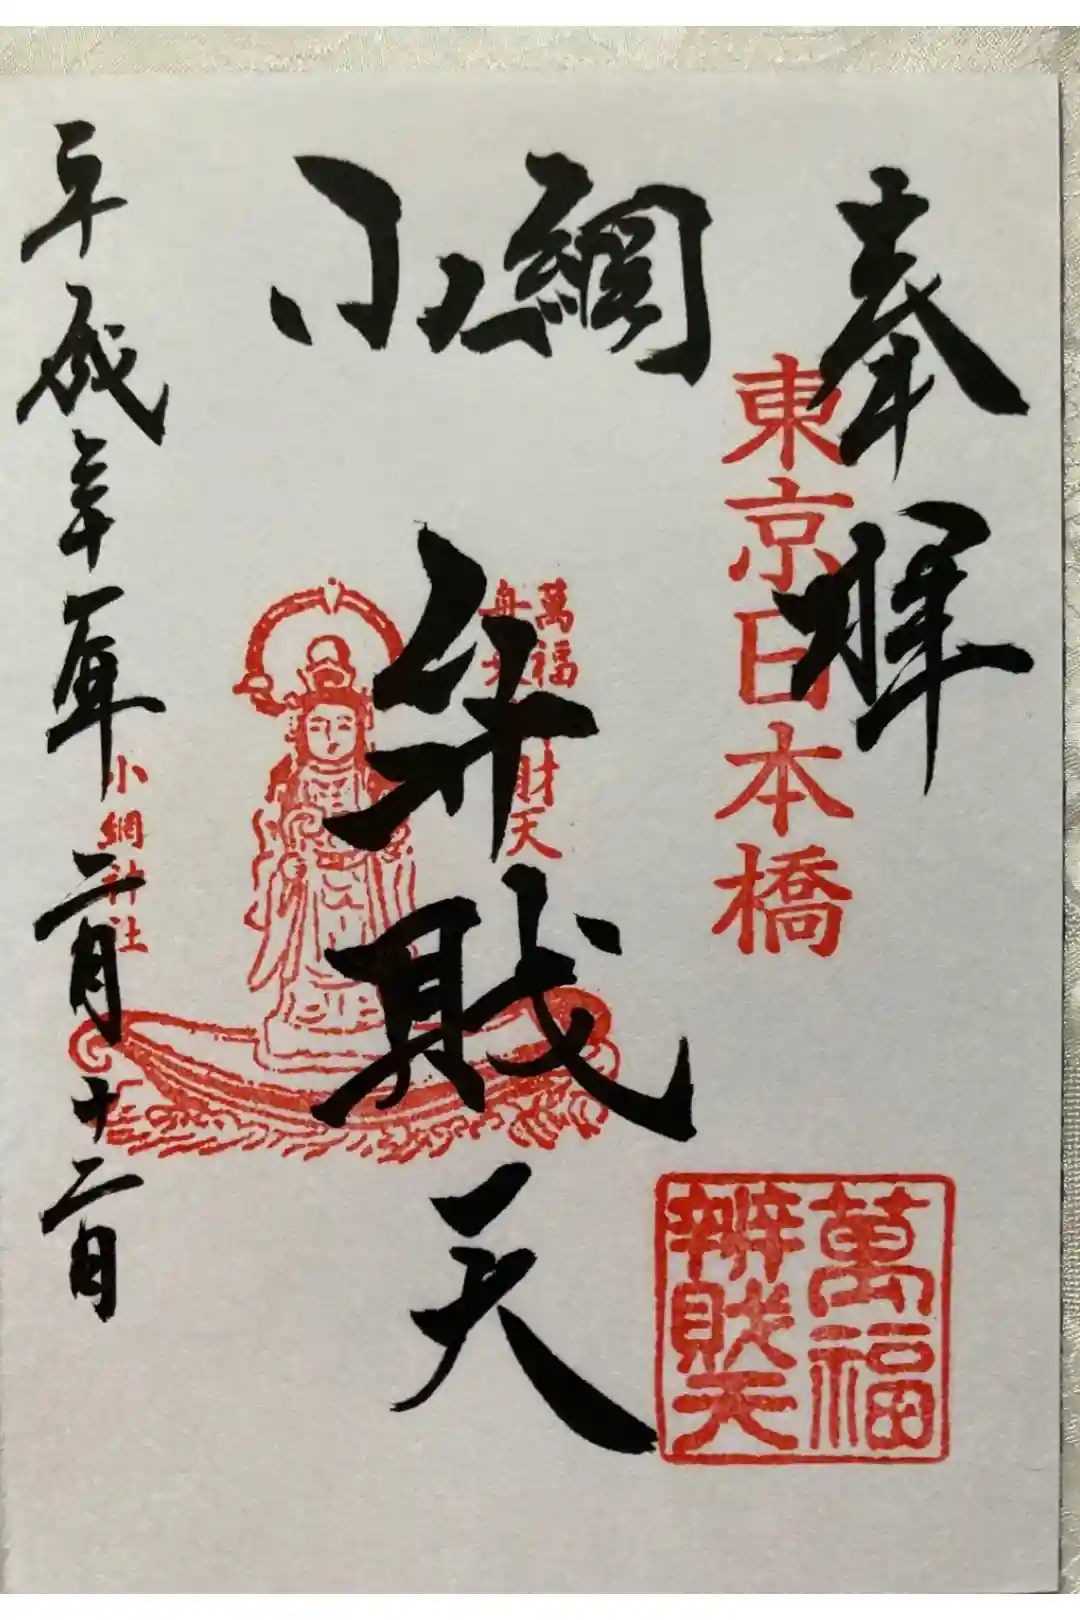 奉拝
東京日本橋
小網
弁財天
萬福
舟
財天
萬福
辨財天
平成
二月十二日
小網神社